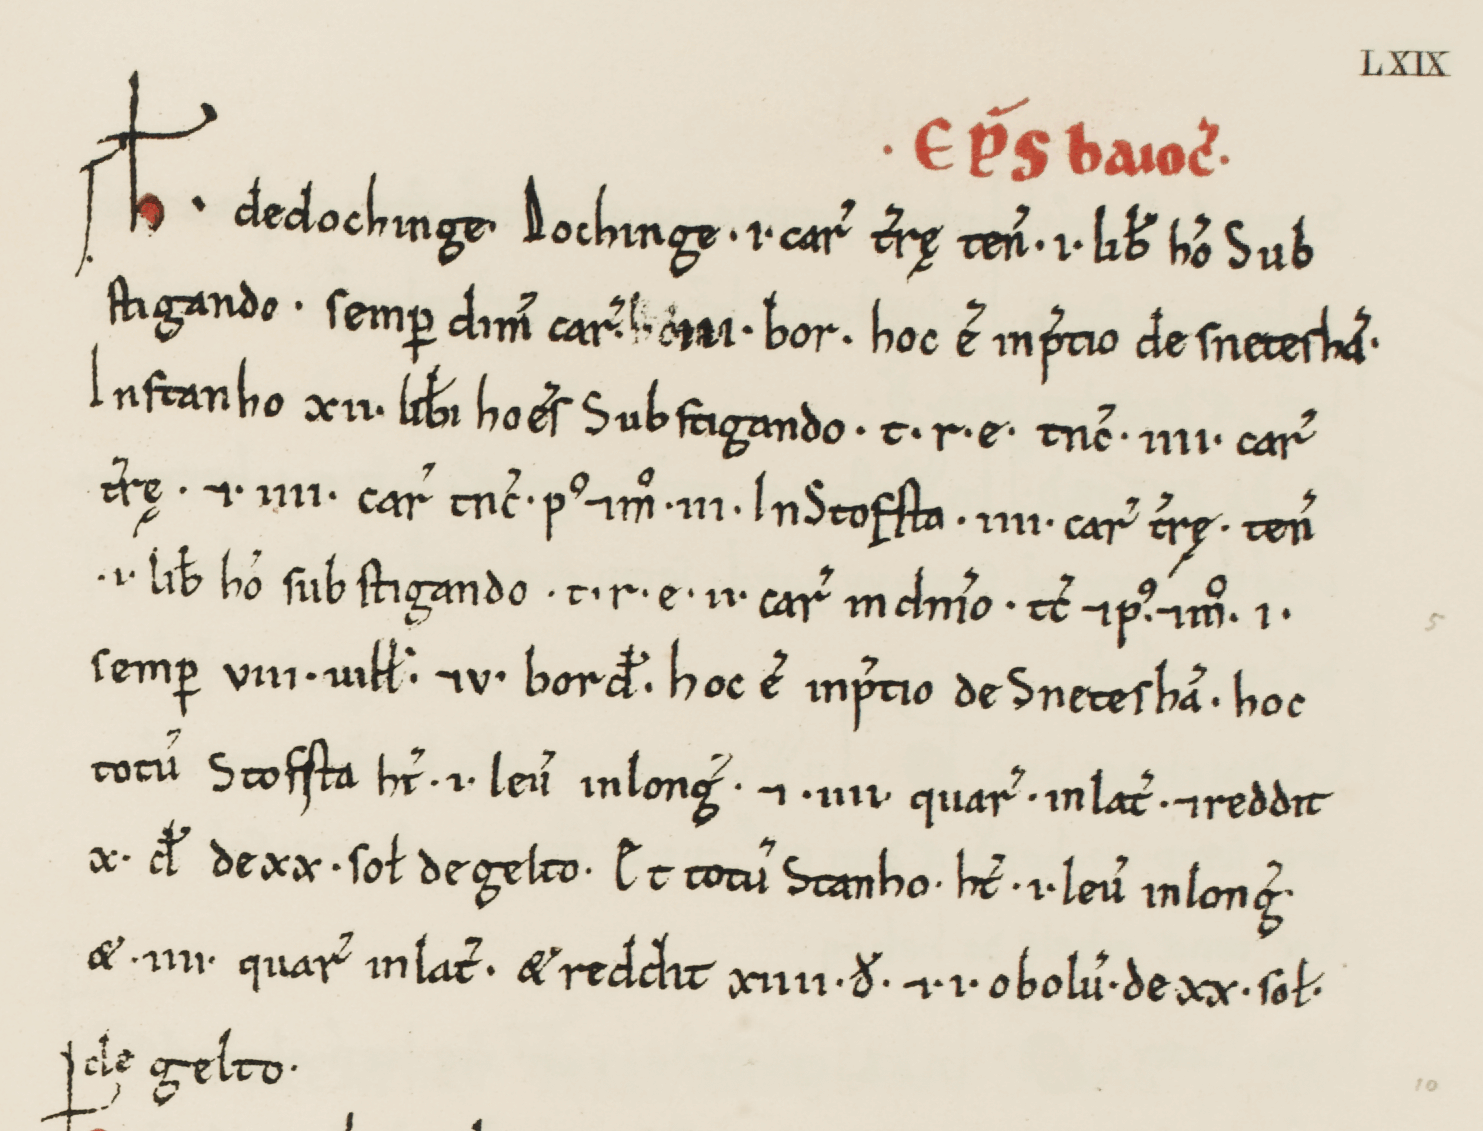 LXIX
· EP̄S baioc̄.
H · dedochinge Dochinge · i · car̄ t̄rę ten̄ · i · lib̄ hō Sub
stigando · semp̱ dim̄ car̄. iii · bor · hoc ē inp̄tio de sneteshā·
Instanho xii · lib̄i hoēs Substigando · t · r · e · tnc̄ · iiii · car̄
t̄rę · ⁊ · iiii · car̄ tnc̄ · pꝰ ⁊ m̊ · iii · In Stofsta · iiii · car̄ t̄rę · ten̄
· i · lib̄ hō sub stigando · t · r · e · ii · car̄ indn̄io · tc̄ ⁊ pꝰ · ⁊ m̊ · i ·
semp̱ viii · uiłł · ⁊ v · bord̄ · hoc ē inp̄tio de Sneteshā · hoc
totū Stofsta ht̄ · i · leū inlonḡ · ⁊ · iiii · quar̄ · inlat̄ · ⁊ reddit
x · d̄ dexx · soł degelto · Et totū Stanho · ht̄ · i · leū inlonḡ·
æ · iiii · quar̄ inlat̄ · æ reddit xiiii · đ · ⁊ · i · obolū · dexx · soł·
de gelto ·
5
10